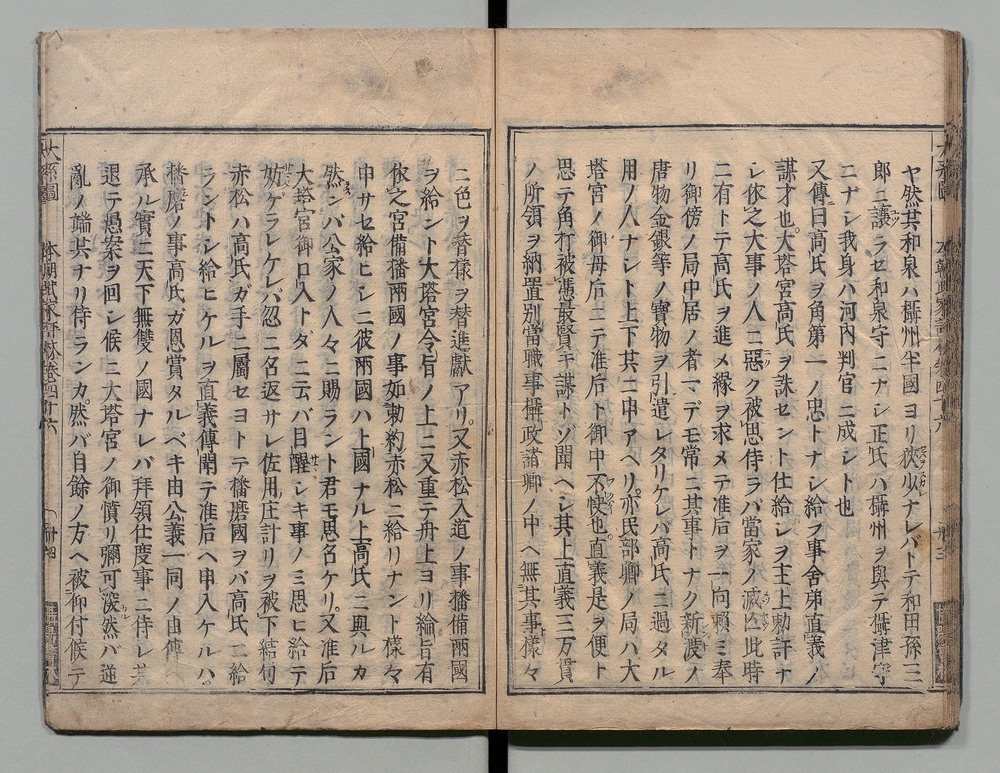 ヤ然其和泉ハ攝州半國ヨリ狹少ナレバトテ和田孫三
郎ニ讓ラセ和泉守ニナシ正氏ハ攝州ヲ與テ攝津守
ニナシ我身ハ河内判官ニ成シト也
又傳曰高氏ヲ角第一ノ忠トナシ給フ事舍弟直義ノ
謀才也大塔宮高氏ヲ誅セント仕給シヲ主上勅許ナ
シ依之大事ノ人ニ惡ク被思侍ラバ當家ノ滅亡此時
ニ有トテ高氏ヲ進メ縁ヲ求メテ准后ヲ一向賴ミ奉
リ御傍ノ局中居ノ者マデモ常ニ其事トナク新渡ノ
唐物金銀等ノ寶物ヲ引遣レタリケレバ高氏ニ過タル
用ノ人ナシト上下其ニ申アヘリ亦民部卿ノ局ハ大
塔宮ノ御母后ニテ准后ト御中不快也直義是ヲ便ト
思テ角行被憑最賢キ謀トゾ聞ヘシ其上直義三万貫
ノ所領ヲ納置別當職事攝政諸卿ノ中ヘ無其事樣々
ニ色ヲ替樣ヲ替進獻アリ又赤松入道ノ事播備兩國
ヲ給ント大塔宮令旨ノ上ニ又重テ舟上ヨリ綸旨有
依之宮備播兩國ノ事如勅約赤松ニ給リナント樣々
申サセ給ヒシニ彼兩國ハ上國ナル上高氏ニ與ルカ
然ンバ公家ノ人々ニ賜ラント君モ思名ケリ又准后
大塔宮御口入トダニ云バ目醒シキ事ノミ思ヒ給テ
妨ケラレケレバ忽ニ名返サレ佐用庄計リヲ被下結句
赤松ハ高氏ガ手ニ屬セヨトテ播磨國ヲバ高氏ニ給
ラントシ給ヒケルヲ直義傳聞テ准后ヘ申入ケルハ
播磨ノ事高氏ガ恩賞タルベキ由公義一同ノ由傳ヘ
承ル實ニ天下無雙ノ國ナレバ拜領仕度事ニ侍レ共
退テ愚案ヲ回シ候ニ大塔宮ノ御憤リ彌可深然バ逆
亂ノ端其ナリ侍ランカ然バ自餘ノ方ヘ被仰付候テ